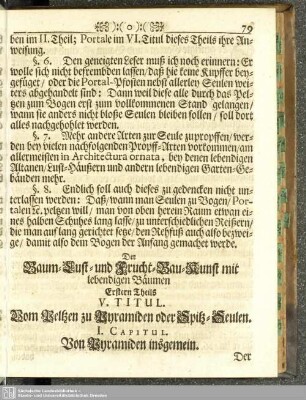 ( o )
79
ben im II. Theil; Portale im VI. Titul dieses Theils ihre An-
weisung.
§. 6. Den geneigten Leser muß ich noch erinnern: Er
wolle sich nicht befrembden lassen / daß hie keine Kupffer bey-
gefüget / oder die Portal-Pfosten nebst allerley Seulen wei-
ters abgehandelt sind: Dann weil diese alle durch das Pel-
tzen zum Bogen erst zum vollkommenen Stand gelangen /
wann sie anders nicht bloße Seulen bleiben sollen / soll dort
alles nachgehohlet werden.
§. 7. Mehr andere Arten zur Seule zupropffen / wer-
den bey vielen nachfolgenden Propff-Arten vorkommen / am
allermeisten in Architectura ornata, bey denen lebendigen
Altanen / Lust-Häußern und andern lebendigen Garten-Ge-
bäuden mehr.
§. 8. Endlich soll auch dieses zu gedencken nicht un-
terlassen werden: Daß / wann man Seulen zu Bogen / Por-
talen ꝛc. peltzen will / man von oben herein Raum etwan ei-
nes halben Schuhes lang lasse / zu unterschiedlichen Reißern /
die man auf lang gerichter setze / den Rehfuß auch also bezwei-
ge / damit also dem Bogen der Anfang gemachet werde.
Der
Baum-Lust- und Frucht-Bau-Kunst mit
lebendigen Bäumen
Erstern Theils
V. TITUL.
Vom Peltzen zu Pyramiden oder Spitz-Seulen.
I. CAPITUL.
Von Pyramiden insgemein.
Der